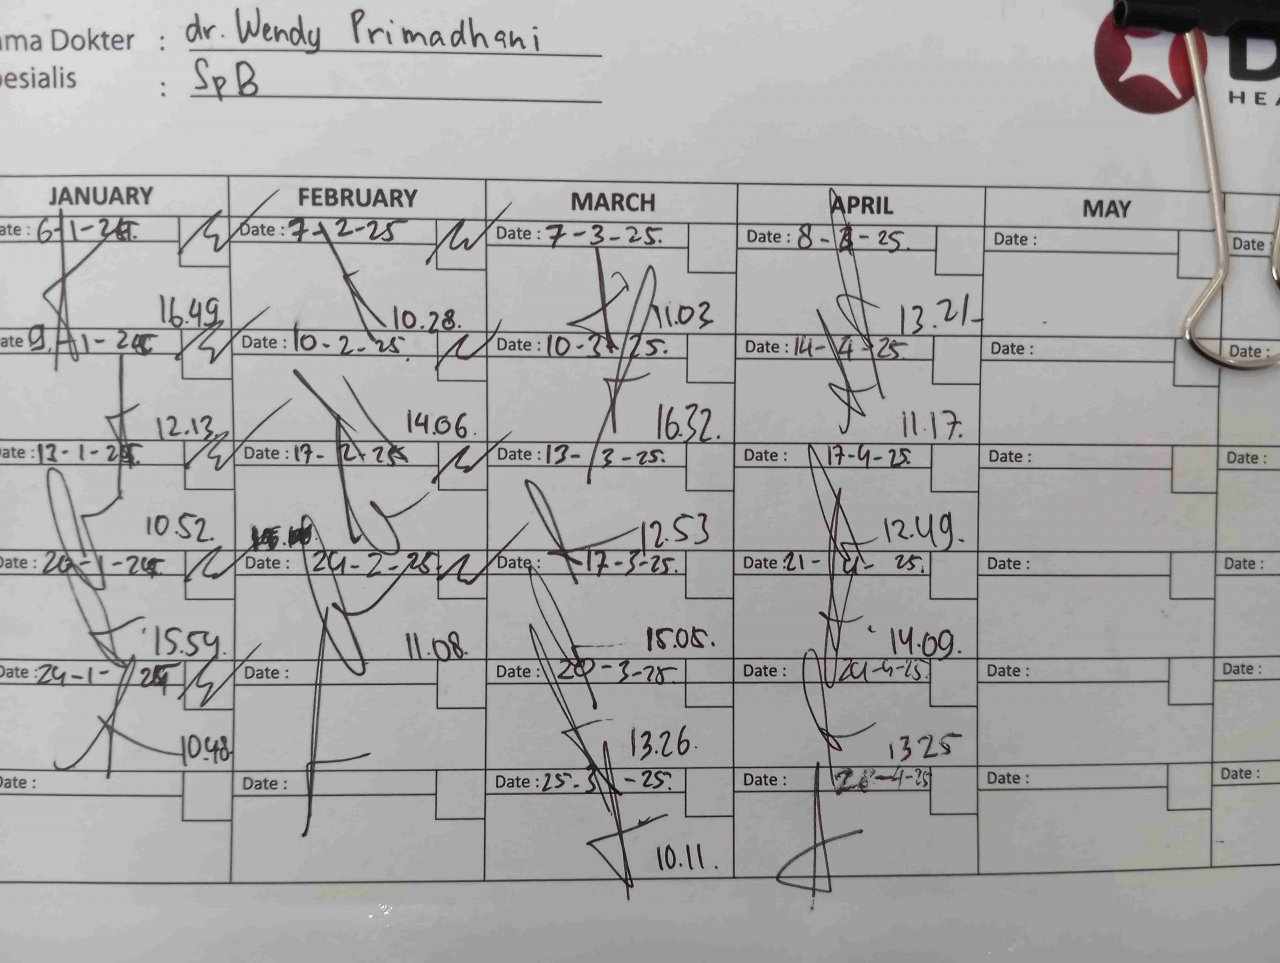 ama Dokter : dr. Wendy Primadhani
esialis : SpB
D
HEA
JANUARY FEBRUARY MARCH APRIL MAY
ate : 6-1-25. Date : 7-2-25 Date : 7-3-25. Date : 8- -25. Date : Date :
16.49 10.28. 11.03 13.21
ate 9-1-25 Date : 10-2-25. Date : 10-3-25. Date : 14-4-25 Date : Date :
12.13 14.06. 16.32. 11.17.
ate : 13-1-25. Date : 17-2-25 Date : 13-3-25. Date : 17-4-25. Date : Date :
10.52 12.53 12.49.
ate : 20-1-25. Date : 24-2-25. Date : 17-3-25. Date : 21-4-25. Date : Date :
15.54. 11.08. 15.05. 14.09.
Date : 24-1-25 Date : Date : 20-3-25. Date : 24-4-25. Date : Date :
10.48 13.26. 13 25
Date : Date : Date : 25-3-25. Date : -4-25 Date : Date :
10.11.